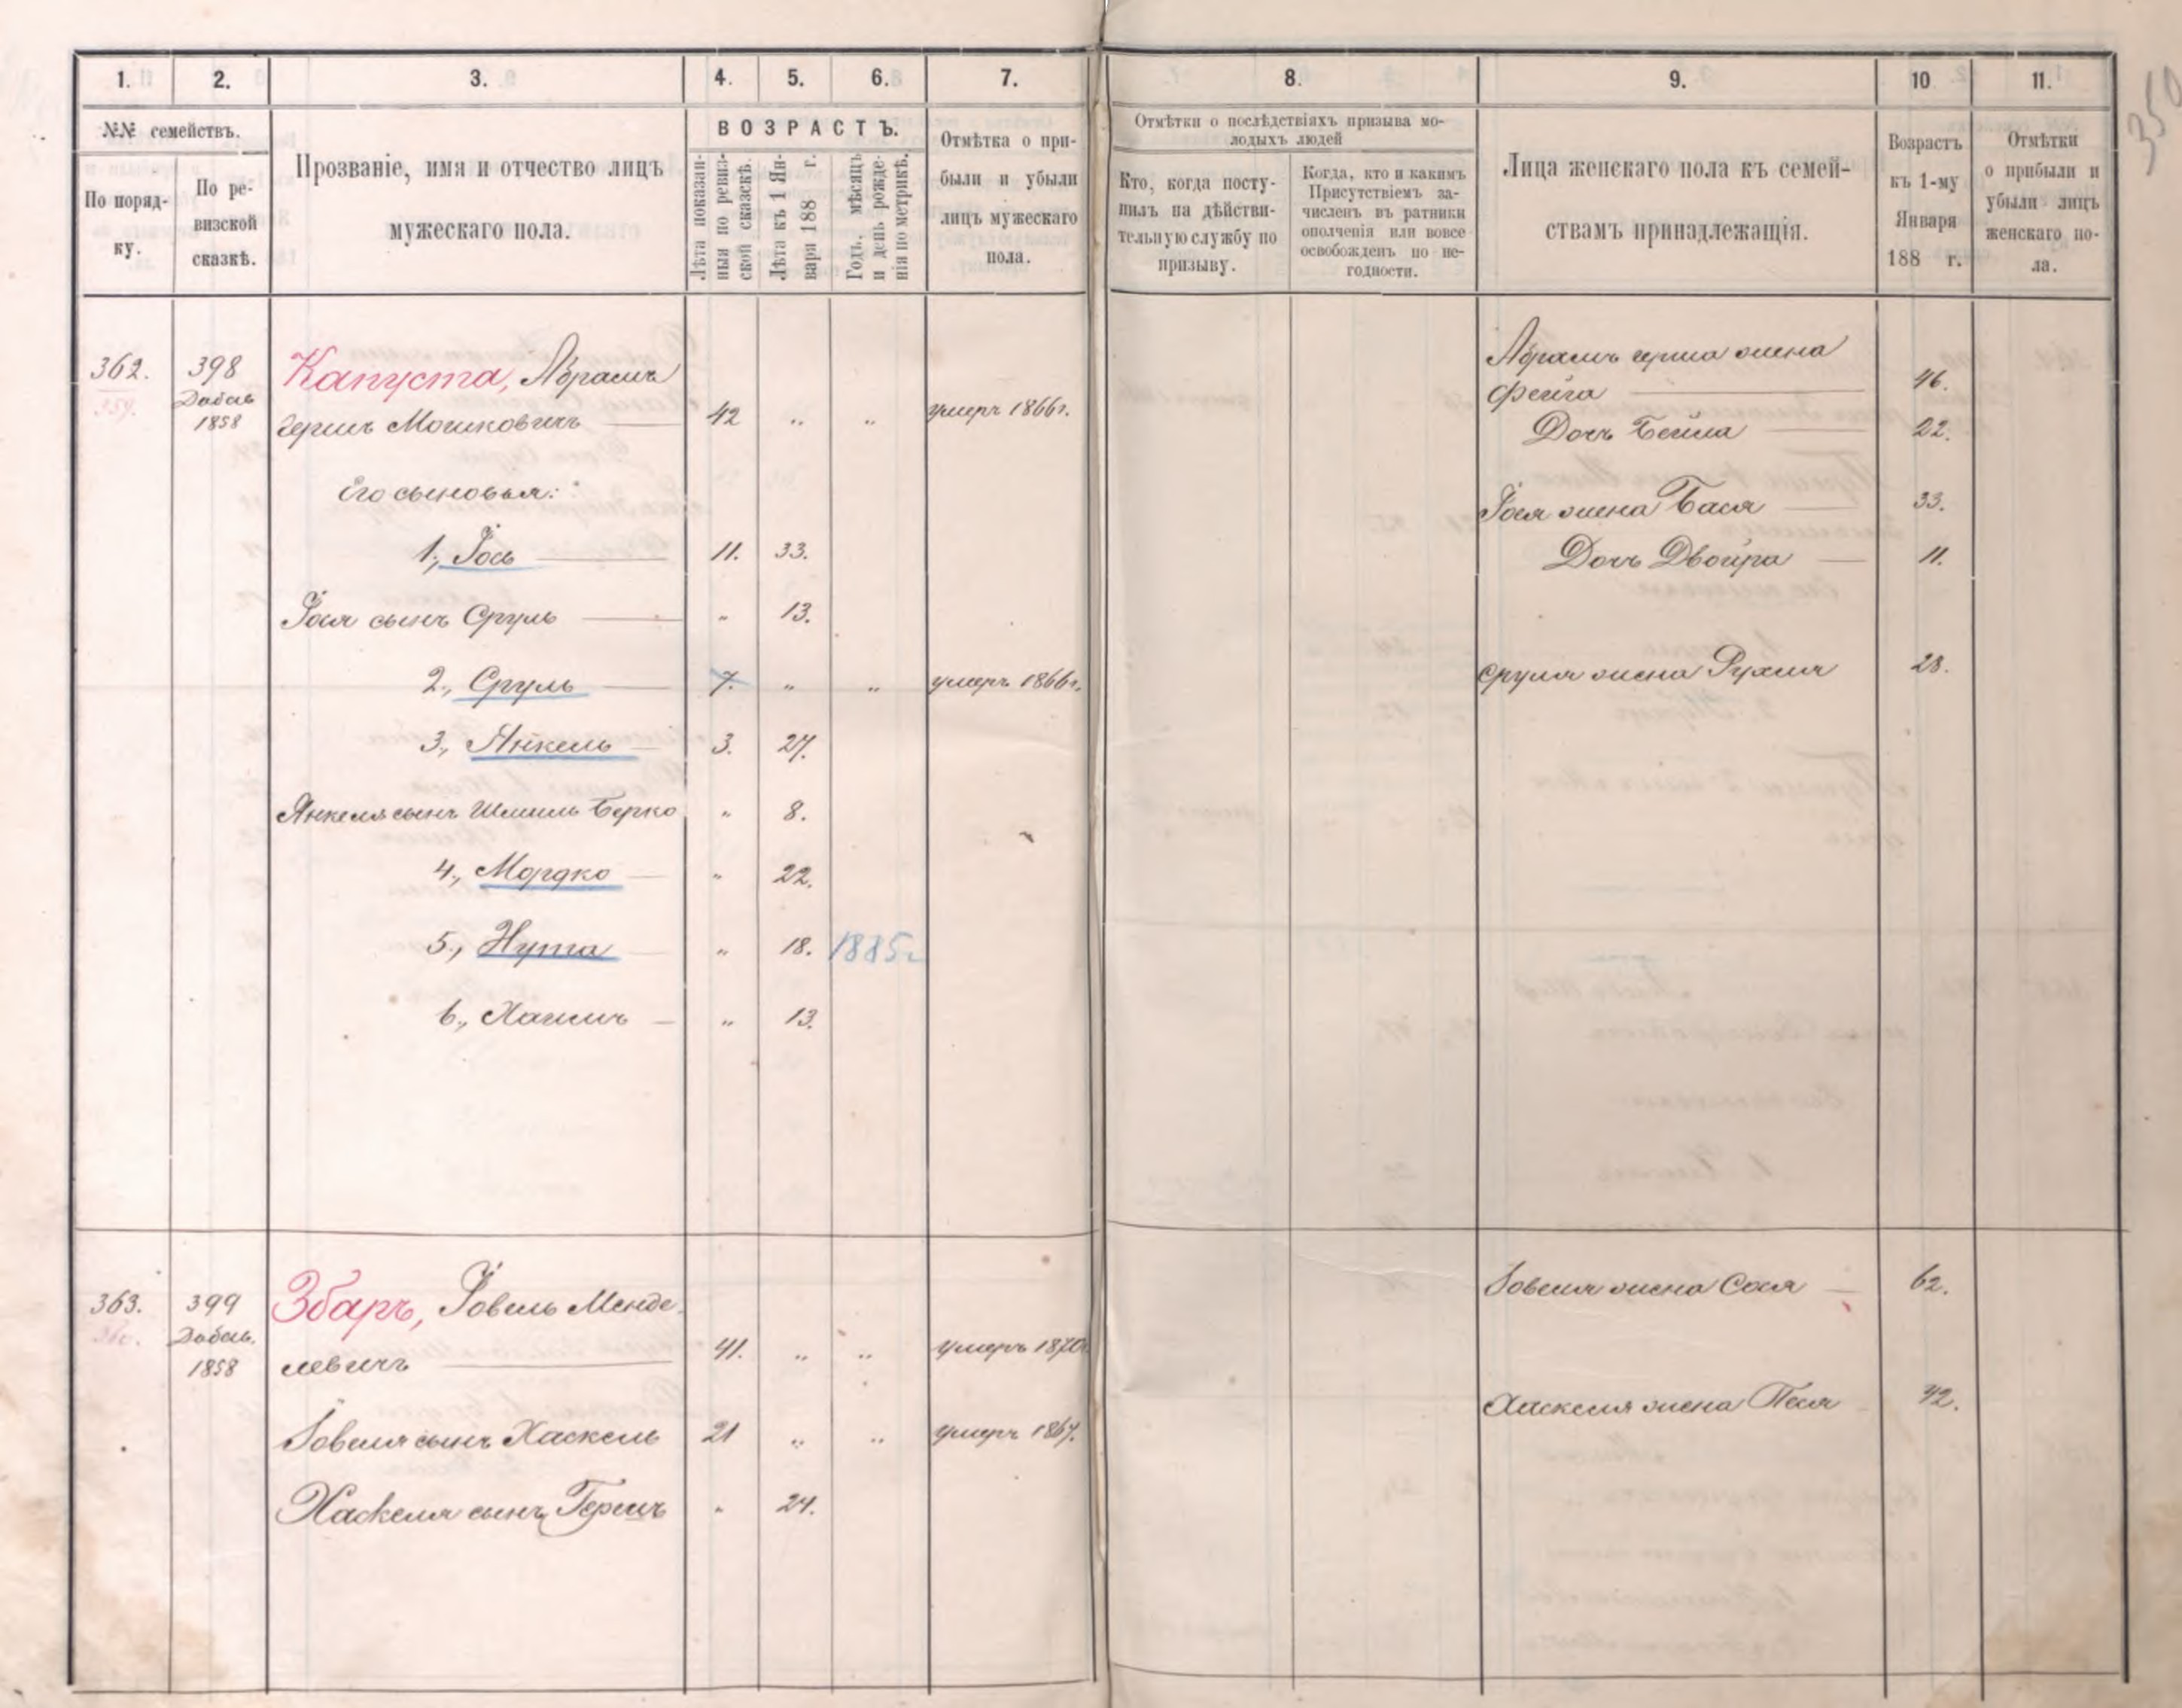 350
1. 2. 3. 4. 5. 6. 7. 8. 9. 10 11.
№№ семействъ.
По поряд-
ку.
По ре-
визской
сказкѣ.
Прозваніе, имя и отчество лицъ
мужескаго пола.
ВОЗРАСТЪ.
Лѣта показан-
ныя по ревиз-
ской сказкѣ.
Лѣта къ 1 Ян-
варя 188 г.
Годъ, мѣсяцъ
и день рожде-
нія по метрикѣ.
Отмѣтка о при-
были и убыли
лицъ мужескаго
пола.
Отмѣтки о послѣдствіяхъ призыва мо-
лодыхъ людей
Кто, когда посту-
пилъ на дѣйстви-
тельную службу по
призыву.
Когда, кто и какимъ
Присутствіемъ за-
численъ въ ратники
ополченія или вовсе
освобожденъ по не-
годности.
Лица женскаго пола къ семей-
ствамъ принадлежащія.
Возрастъ
къ 1-му
Января
188 г.
Отмѣтки
о прибыли и
убыли лицъ
женскаго по-
ла.
362. 398 Капуста, Абрамъ
359. Добав.
1858 Гершъ Мошковичъ 42 " " умеръ 1866 г.
Его сыновья:
1, Іось 11. 33.
Іося сынъ Сруль " 13.
2, Сруль 7. " " умеръ 1866 г.
3, Янкель 3. 27.
Янкеля сынъ Шмиль Берко " 8.
4, Мордко " 22.
5, Нута " 18. 1885 г
6, Хаимъ " 13.
Абрамъ Герша жена
Фейга 46.
Дочь Бейла 22.
Іося жена Бася 33.
Дочь Двойра 11.
Сруля жена Рухля 28.
363. 399 Збаръ, Іовель Менде-
360. Добав.
1858 левичъ 41. " " умеръ 1870 г
Іовеля сынъ Хаскель 21 " " умеръ 1867.
Хаскеля сынъ Гершъ " 24.
Іовеля жена Сося 62.
Хаскеля жена Песя 42.